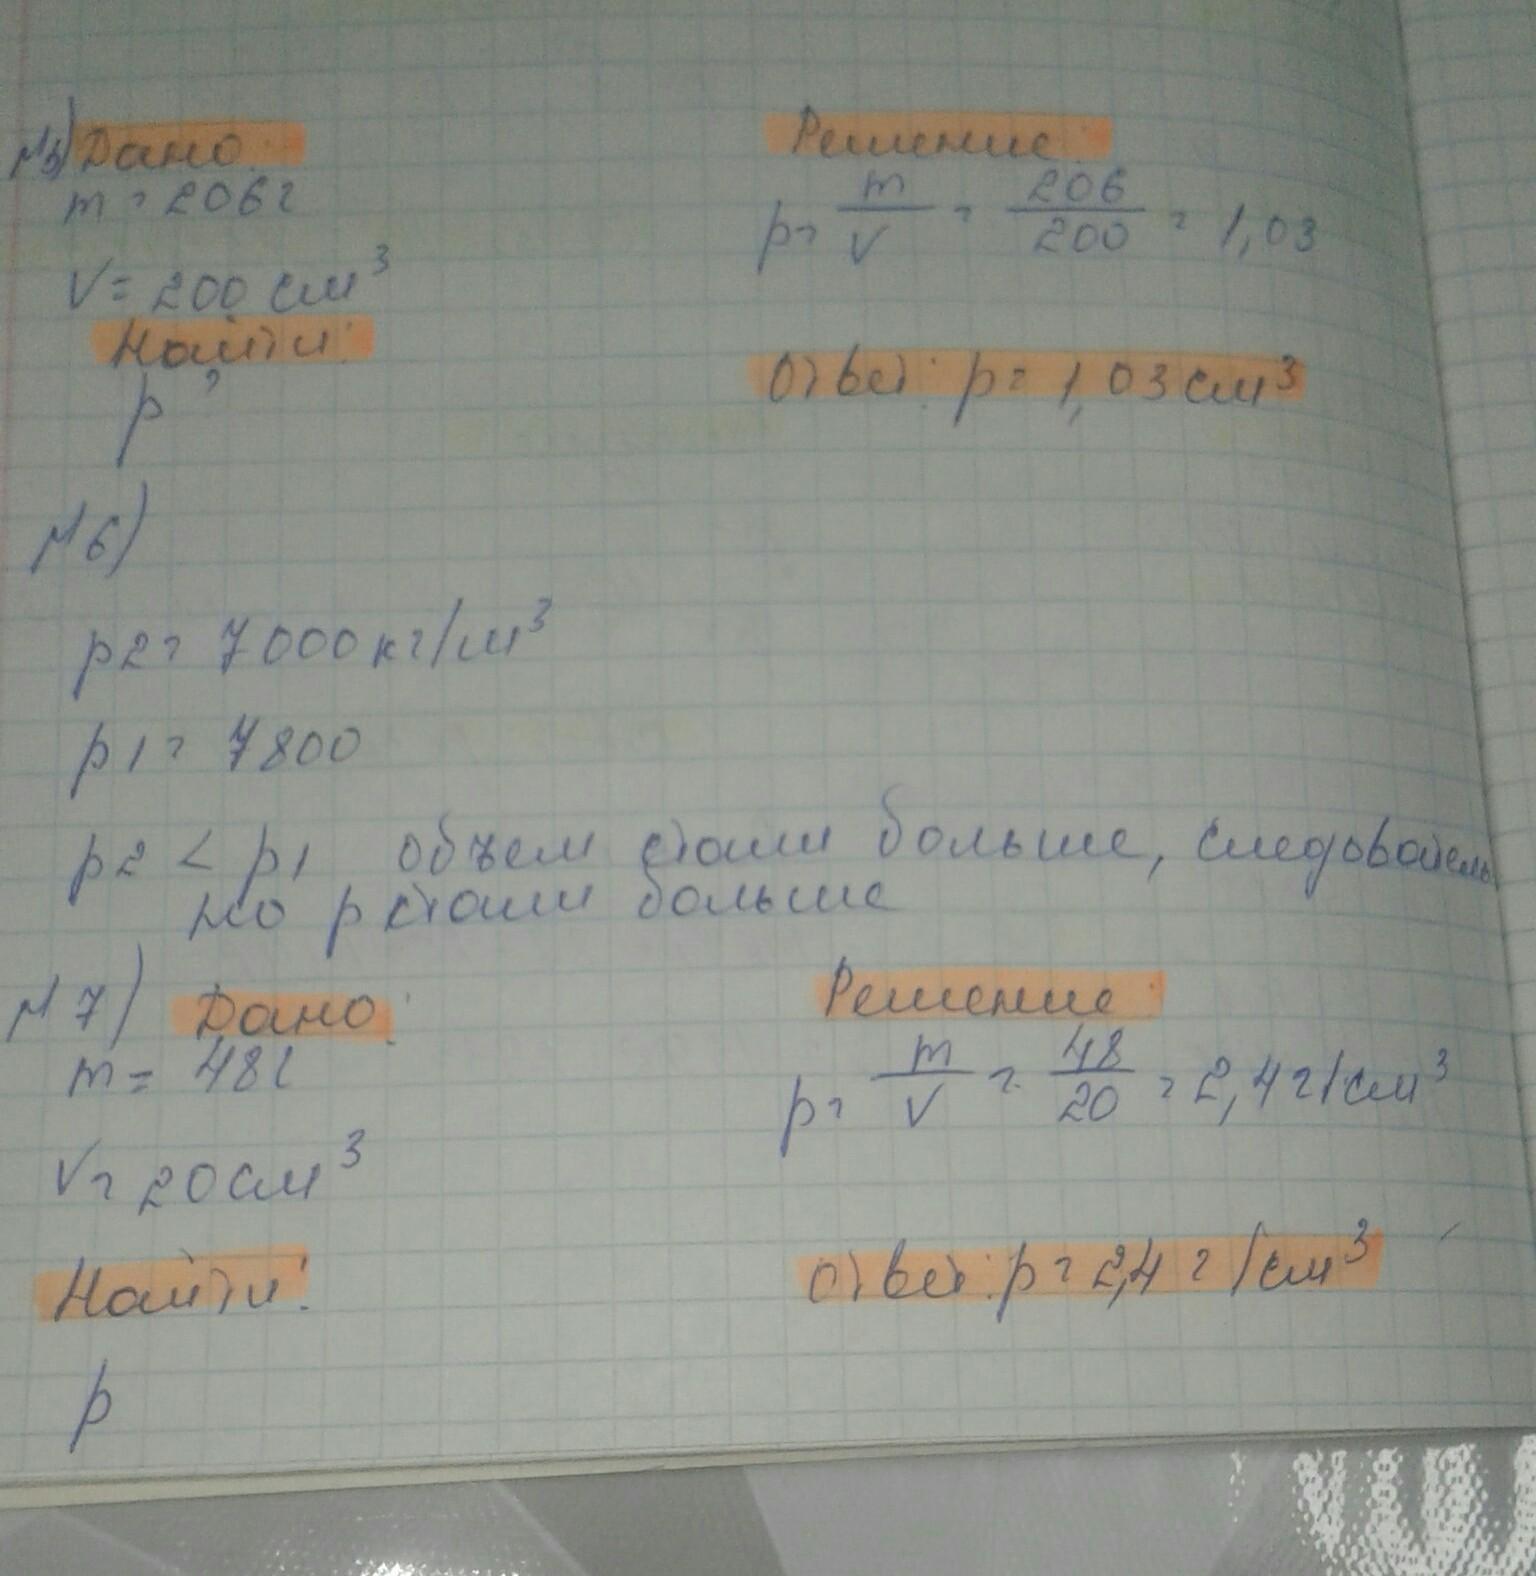 №5) Дано:
m = 206 г
V = 200 см³
Найти:
p - ?
Решение:
p = m/V = 206/200 = 1,03
Ответ: p = 1,03 см³
№6)
p2 = 7000 кг/м³
p1 = 7800
p2 < p1 объем стали больше, следователь
но p стали больше
№7) Дано:
m = 48 г
V = 20 см³
Найти:
p
Решение:
p = m/V = 48/20 = 2,4 г/см³
Ответ: p = 2,4 г/см³